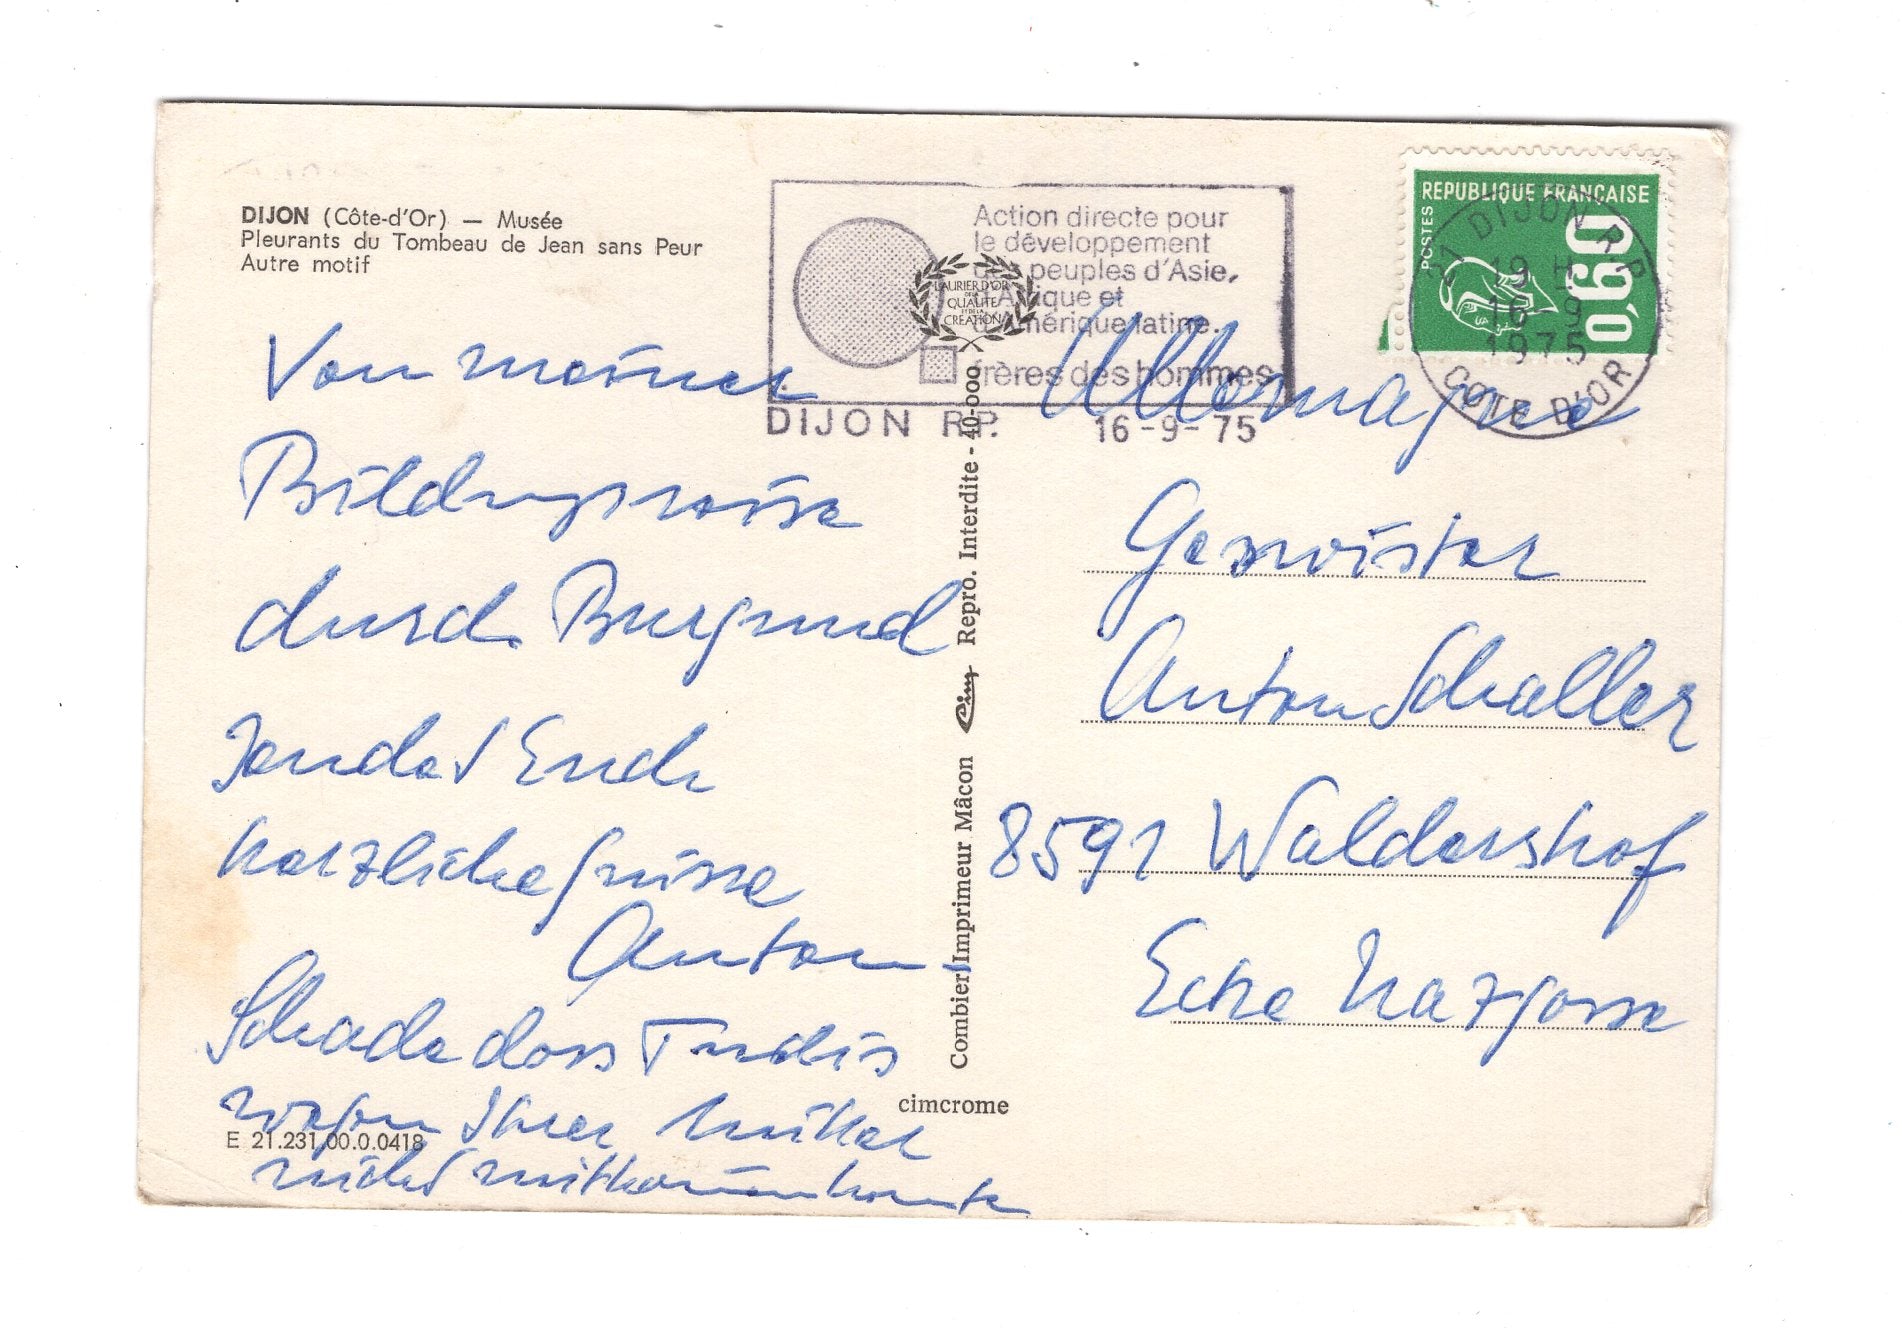 DIJON (Côte-d'Or) — Musée
Pleurants du Tombeau de Jean sans Peur
Autre motif
Von meiner
Bildungsreise
durch Burgund
sendet Euch
herzliche Grüsse
Anton
Schade dass Trudis
wegen Ihrer Mutter
nicht mitkommen konnte
E 21.231.00.0.0418
cimcrome
Combier Imprimeur Mâcon Cim Repro. Interdite - 40-000
LAURIER D'OR
DE LA
QUALITÉ
ET DE LA
CRÉATION
Action directe pour
le développement
des peuples d'Asie,
d'Afrique et
d'Amérique latine.
frères des hommes
DIJON R.P. 16-9-75
REPUBLIQUE FRANÇAISE
POSTES
0,60
21 DIJON R.P.
19 H
16-9
1975
COTE D'OR
Allemagne
Geswister
Anton Schaller
8591 Waldershof
Ecke